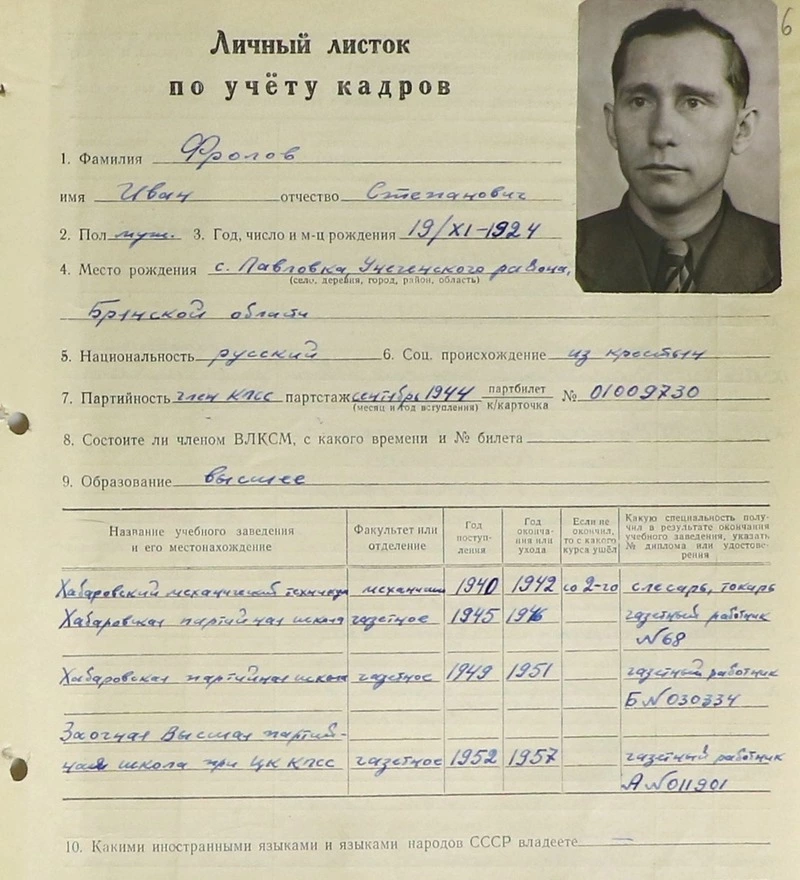 6
Личный листок
по учёту кадров
1. Фамилия Фролов
имя Иван отчество Степанович
2. Пол муж. 3. Год, число и м-ц рождения 19/XI-1924
4. Место рождения с. Павловка, Унечского района,
(село, деревня, город, район, область)
Брянской области
5. Национальность русский 6. Соц. происхождение из крестьян
7. Партийность член КПСС партстаж сентябрь 1944 партбилет № 01009730
(месяц и год вступления) к/карточка
8. Состоите ли членом ВЛКСМ, с какого времени и № билета
9. Образование высшее
Название учебного заведения и его местонахождение Факультет или отделение Год поступ- ления Год оконча- ния или ухода Если не окончил, то с какого курса ушёл Какую специальность полу- чил в результате окончания учебного заведения, указать № диплома или удостове- рения
Хабаровский механический техникум механический 1940 1942 со 2-го слесарь, токарь
Хабаровская партийная школа газетное 1945 1946 газетный работник
№ 68
Хабаровская партийная школа газетное 1949 1951 газетный работник
Б № 030334
Заочная Высшая партий-
ная школа при ЦК КПСС газетное 1952 1957 газетный работник
А № 011901
10. Какими иностранными языками и языками народов СССР владеете —